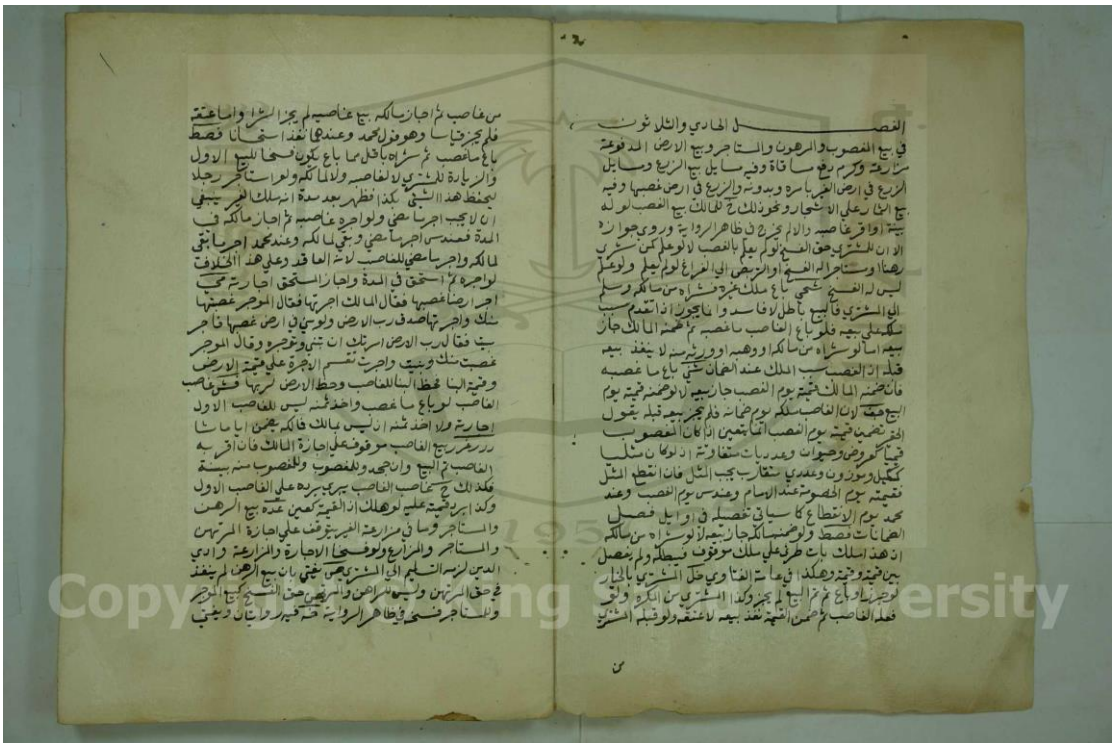 الفصل الحادي والثلاثون
في بيع المغصوب والمرهون والمستاجر وبيع الارض المدفوعة
مزارعة وكرم دفع مساقاة وفيه مسايل بيع الزرع ومسايل
الزرع في ارض الغير بامره وبدونه والزرع في ارض غصبها وفيه
بيع الثمار علي الاشجار ونحو ذلك للمالك بيع الغصب لو له
بينة او اقر غاصبه والا لم يجز في ظاهر الرواية وروي جوازه
الا ان للمشتري حق الفسخ لو لم يعلم بالغصب لا لو علم كمن شري
رهنا او مستاجرا له الفسخ او التربص الي الفراغ لو لم يعلم ولو علم
ليس له الفسخ باع ملك غيره فشراه من مالكه وسلم
الي المشتري فالبيع باطل لا فاسد وانما يجوز اذا تقدم سبب
ملكه علي بيعه فلو باع الغاصب ما غصبه ثم ضمنه المالك جاز
بيعه اما لو شراه من مالكه او وهبه او ورثه منه لا ينفذ بيعه
قبله اذ الغصب سبب الملك عند الضمان باع ما غصبه
فان ضمنه المالك قيمة يوم الغصب جاز بيعه لا لو ضمنه قيمة يوم
البيع لان الغاصب ملكه يوم ضمانه فلم يجز بيعه قبله يقول
الحقير تضمين قيمة يوم الغصب انما يتعين اذا كان المغصوب
قيميا كعروض وحيوان وعدديات متفاوتة اذ لو كان مثليا
ككيلي وموزون وعددي متقارب يجب المثل فان انقطع المثل
فقيمته يوم الخصومة عند الامام وعند س يوم الغصب وعند
محمد يوم الانقطاع كما سياتي تفصيله في اوايل فصل
الضمانات ولو ضمنه مالكه جاز بيعه لا لو شراه من مالكه
اذ هذا ملك بات طرئ علي ملك موقوف فيبطله ولم يفصل
بين قيمة وقيمة وهكذا في عامة الفتاوي المشتري بالخيار
لو وهب او باع ثم البيع لم يجز وكذا المشتري من المكره ولو
فعله الغاصب ثم ضمن القيمة نفذ بيعه لا عتقه ولو قبله المشتري
من
من غاصب ثم اجاز مالكه بيع غاصبه لم يجز الشرا واما عتقه
فلم يجز قياسا وهو قول محمد وعندهما نفذ استحسانا
باع ما غصب ثم شراه باقل مما باع يكون فسخا للبيع الاول
والزيادة للمشتري لا لغاصبه ولا لمالكه ولو استاجر رجلا
ليحفظ هذا الشئ بكذا فظهر بعد مدة انه ملك الغير ينبغي
ان لا يجب اجر ما مضي ولو اجره غاصبه ثم اجاز مالكه في
المدة فعند س اجر ما مضي وبقي لمالكه وعند محمد اجر ما بقي
لمالكه واجر ما مضي للغاصب لانه العاقد وعلي هذا الخلاف
لو اجره ثم استحق في المدة واجاز المستحق اجارته
اجر ارضا غصبها فقال المالك اجرتها فقال الموجر غصبتها
منك واجرتها صدق رب الارض ولو بني في ارض غصبها فاجر
بيت فقال رب الارض امرتك ان تبني وتوجره وقال الموجر
غصبت منك وبنيت واجرت تقسم الاجرة علي قيمة الارض
وقيمة البنا فحظ البنا للغاصب وحظ الارض لربها غاصب
الغاصب لو باع ما غصب واخذ ثمنه ليس للغاصب الاول
اجازته ولا اخذ ثمنه اذ ليس بمالك فالكه يضمن ايا ما شا
درر غرر بيع الغاصب موقوف علي اجازة المالك فان اقر به
الغاصب تم البيع وان جحد وللمغصوب منه بينة
فكذلك غاصب الغاصب يبرئ برده علي الغاصب الاول
وكذا برد قيمته عليه لو هلك اذ القيمة كعين عده بيع الرهن
والمستاجر وما في مزارعة الغير يتوقف علي اجازة المرتهن
والمستاجر والمزارع ولو فسخا الاجارة والمزارعة وادي
الدين لزمه التسليم الي المشتري يفتي بان بيع الرهن لم ينفذ
في حق المرتهن وليس للراهن والمرتهن حق الفسخ كبيع الموجر
وللمستاجر فسخه في ظاهر الرواية فيه روايتان ويفتي
Copyright © King Saud University
1957